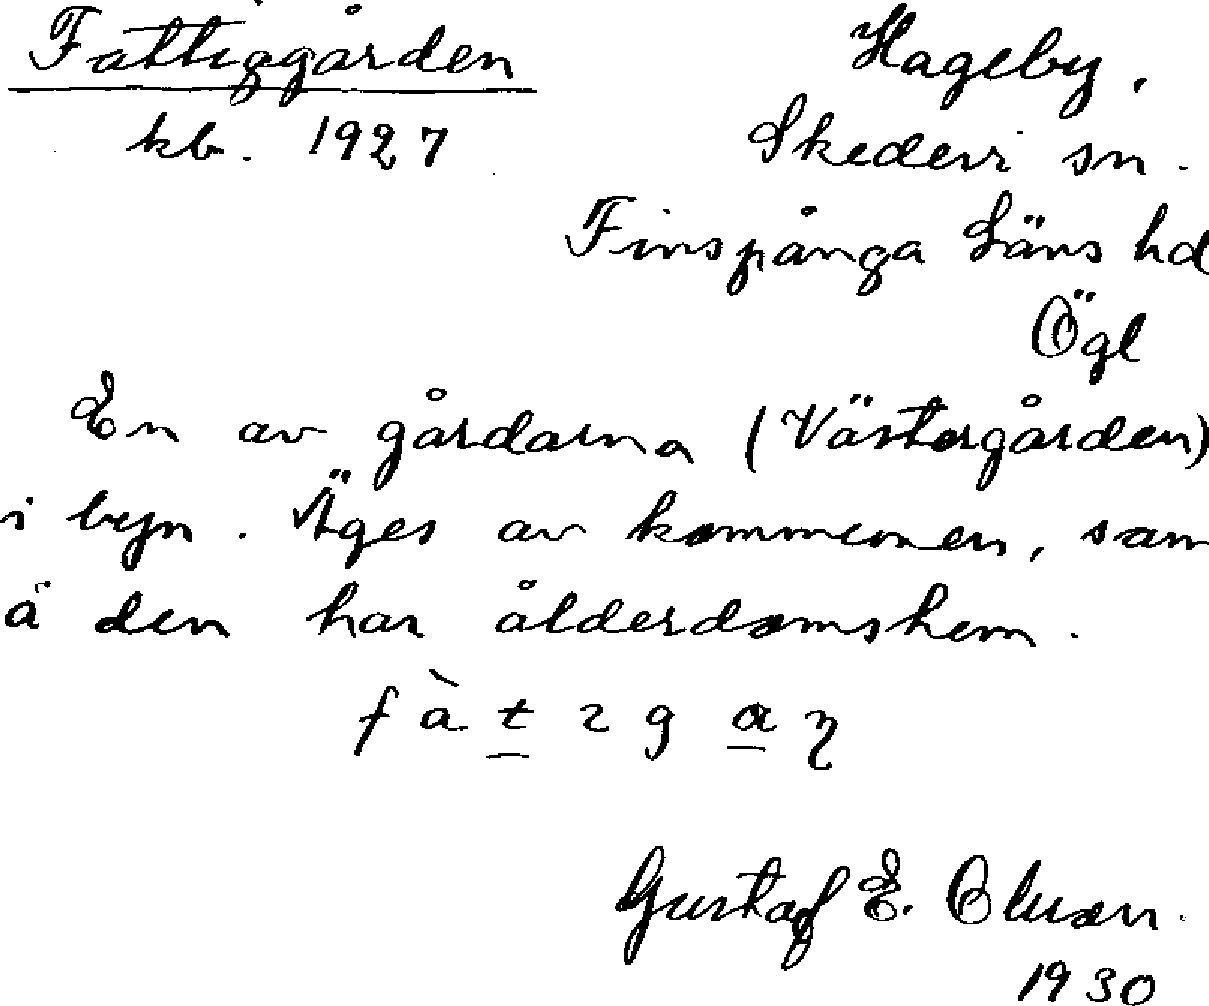 Fattiggården
Hageby,
kb. 1927
Skedevi sn.
Finspånga Läns hd
Ögl
En av gårdarna (Västergården)
i byn. Äges av kommunen, som
å den har ålderdomshem.
Gustaf E. Oluson.
1930